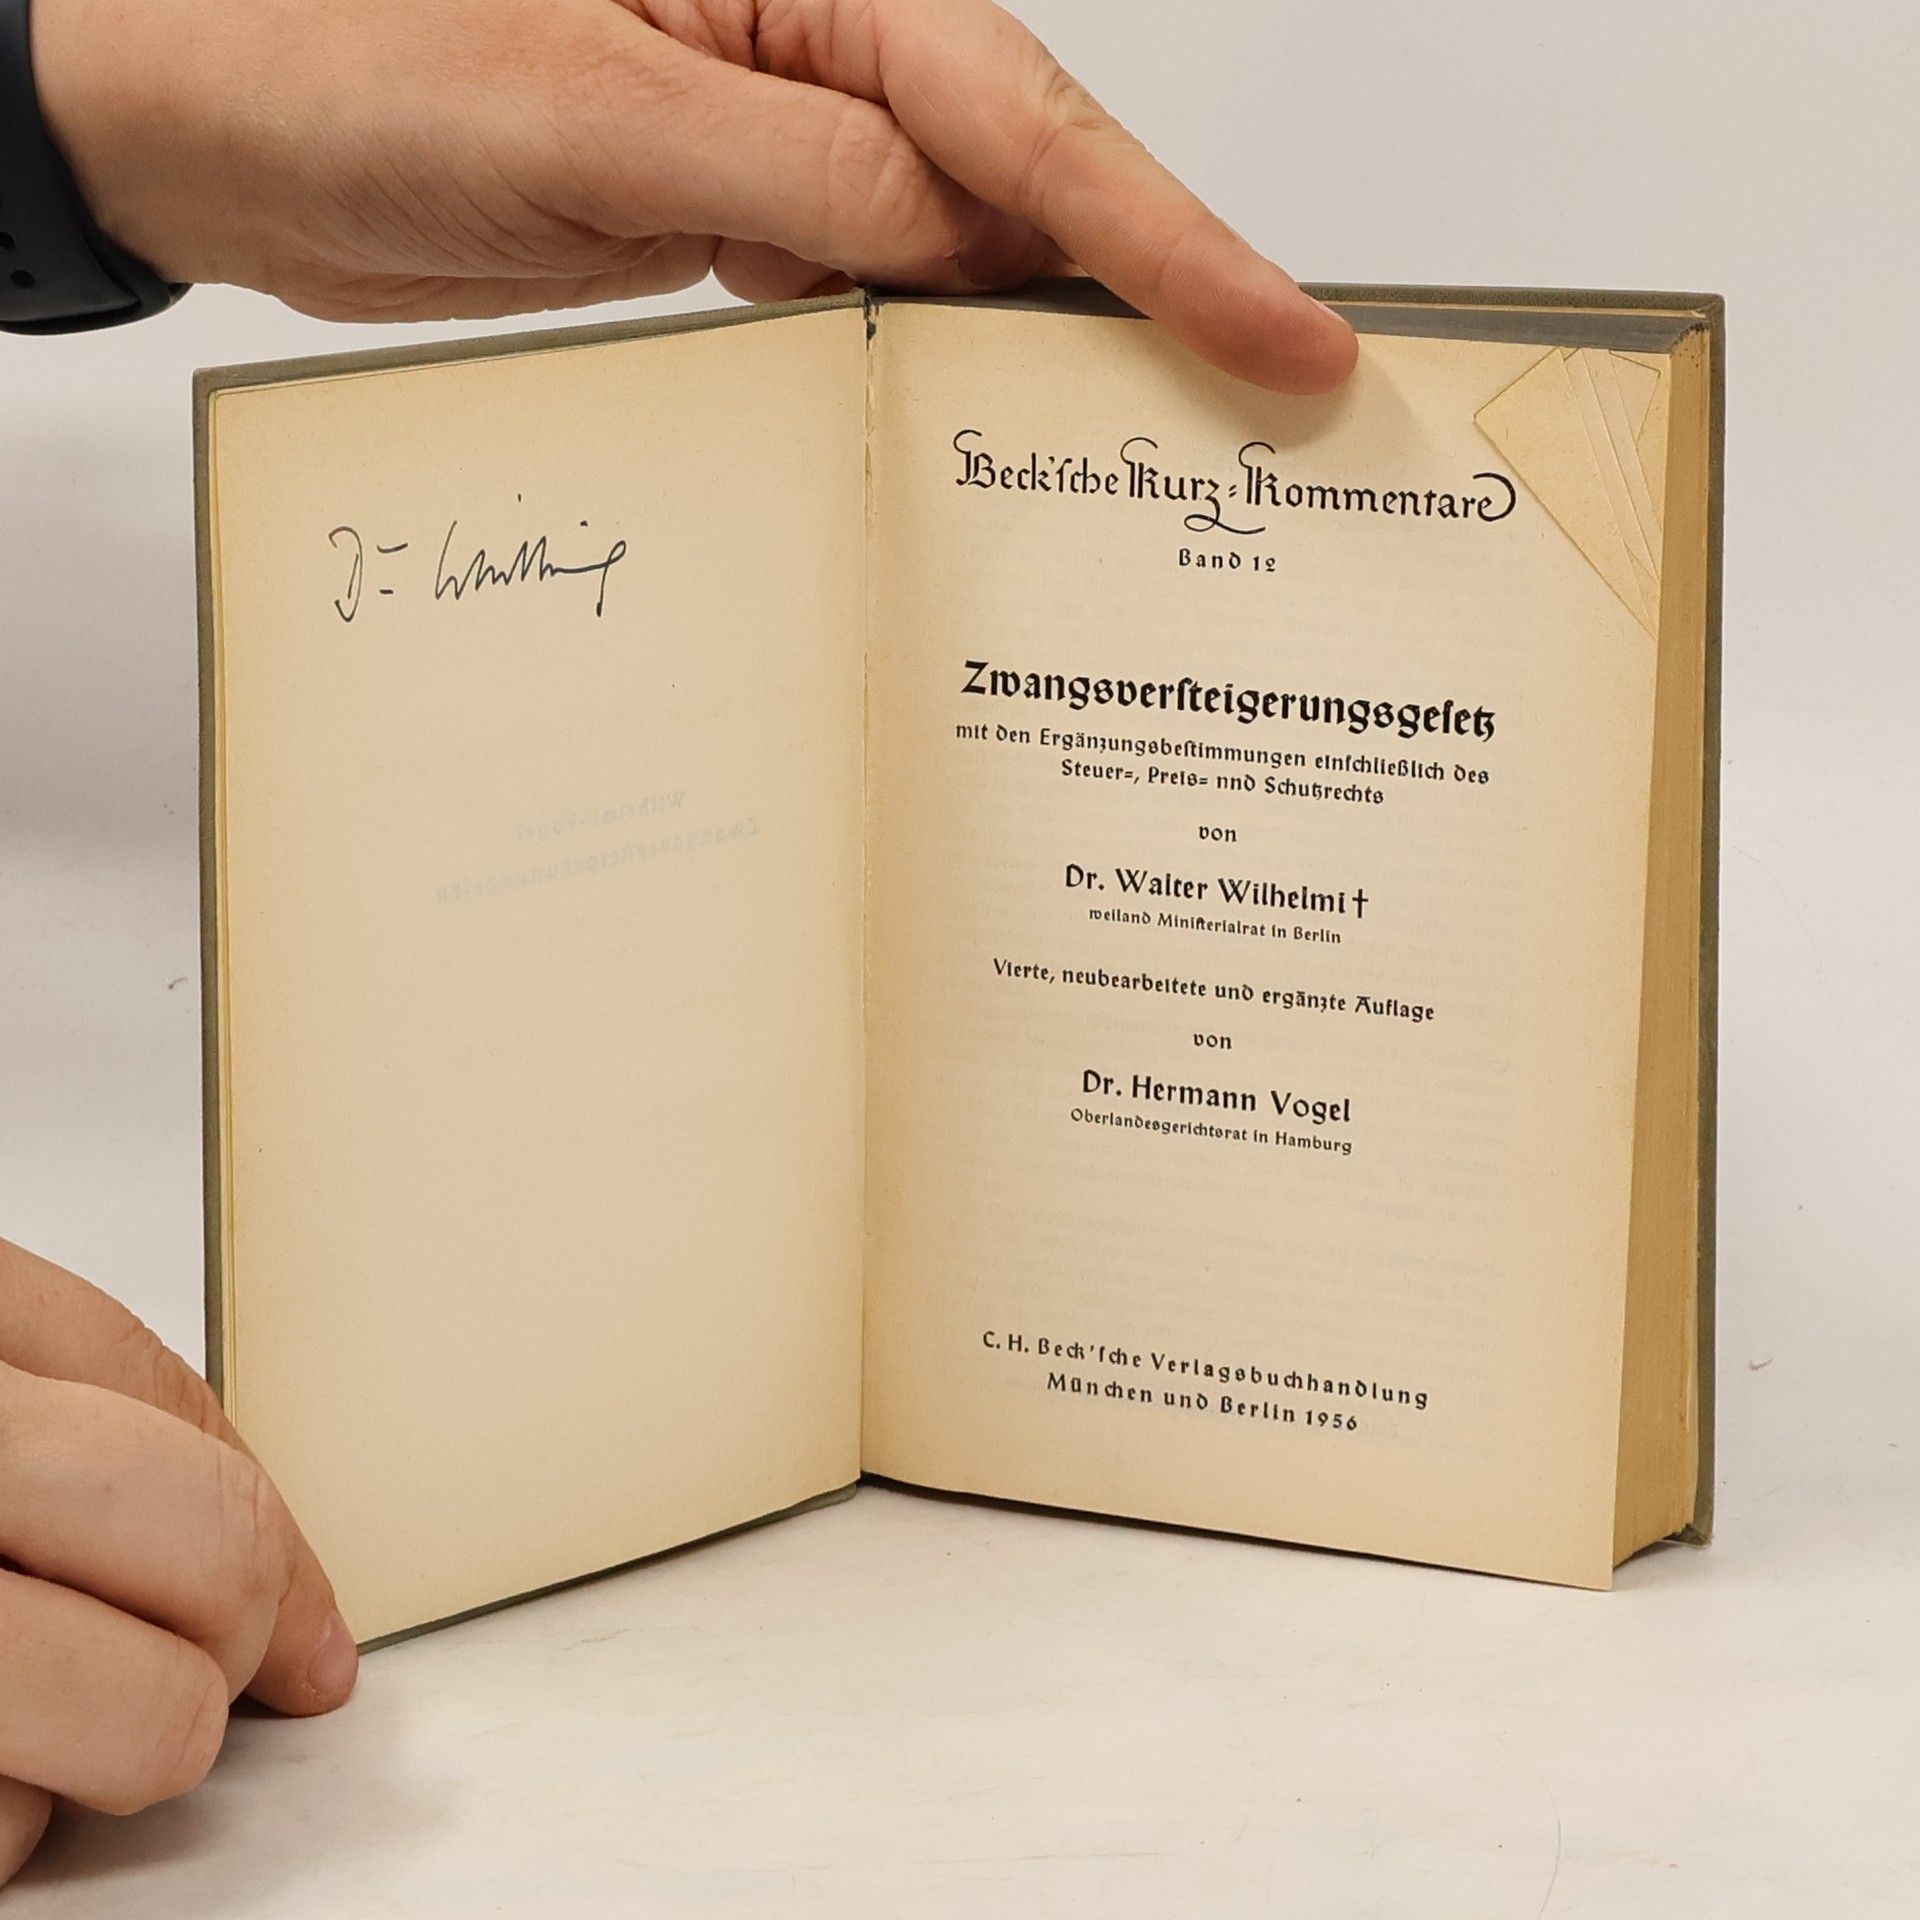 Dr
Beck'sche Kurz=Kommentare
Band 12
Zwangsversteigerungsgesetz
mit den Ergänzungsbestimmungen einschließlich des
Steuer=, Preis= nnd Schutzrechts
von
Dr. Walter Wilhelmi †
weiland Ministerialrat in Berlin
Vierte, neubearbeitete und ergänzte Auflage
von
Dr. Hermann Vogel
Oberlandesgerichtsrat in Hamburg
C. H. Beck'sche Verlagsbuchhandlung
München und Berlin 1956